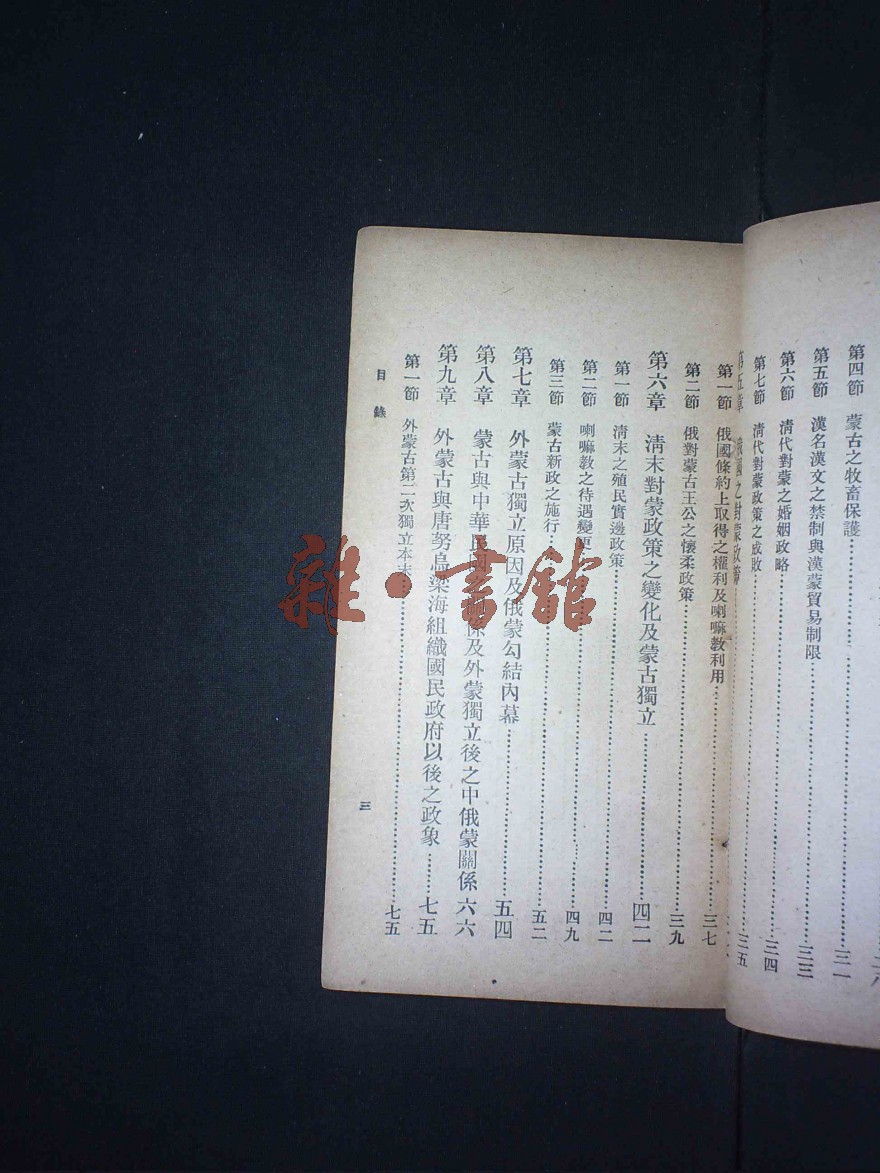 第四節 蒙古之牧畜保護……三一
第五節 漢名漢文之禁制與漢蒙貿易制限……三三
第六節 清代對蒙之婚姻政略……三四
第七節 清代對蒙政策之成敗……三五
第五章 俄國之對蒙政策……
第一節 俄國條約上取得之權利及喇嘛教利用……三七
第二節 俄對蒙古王公之懷柔政策……三九
第六章 清末對蒙政策之變化及蒙古獨立……四二
第一節 清末之殖民實邊政策……四二
第二節 喇嘛教之待遇變更……四九
第三節 蒙古新政之施行……五二
第七章 外蒙古獨立原因及俄蒙勾結內幕……五四
第八章 蒙古與中華民國之關係及外蒙獨立後之中俄蒙關係 六六
第九章 外蒙古與唐努烏梁海組織國民政府以後之政象……七五
第一節 外蒙古第二次獨立本末……七五
目錄
三
雜·書館